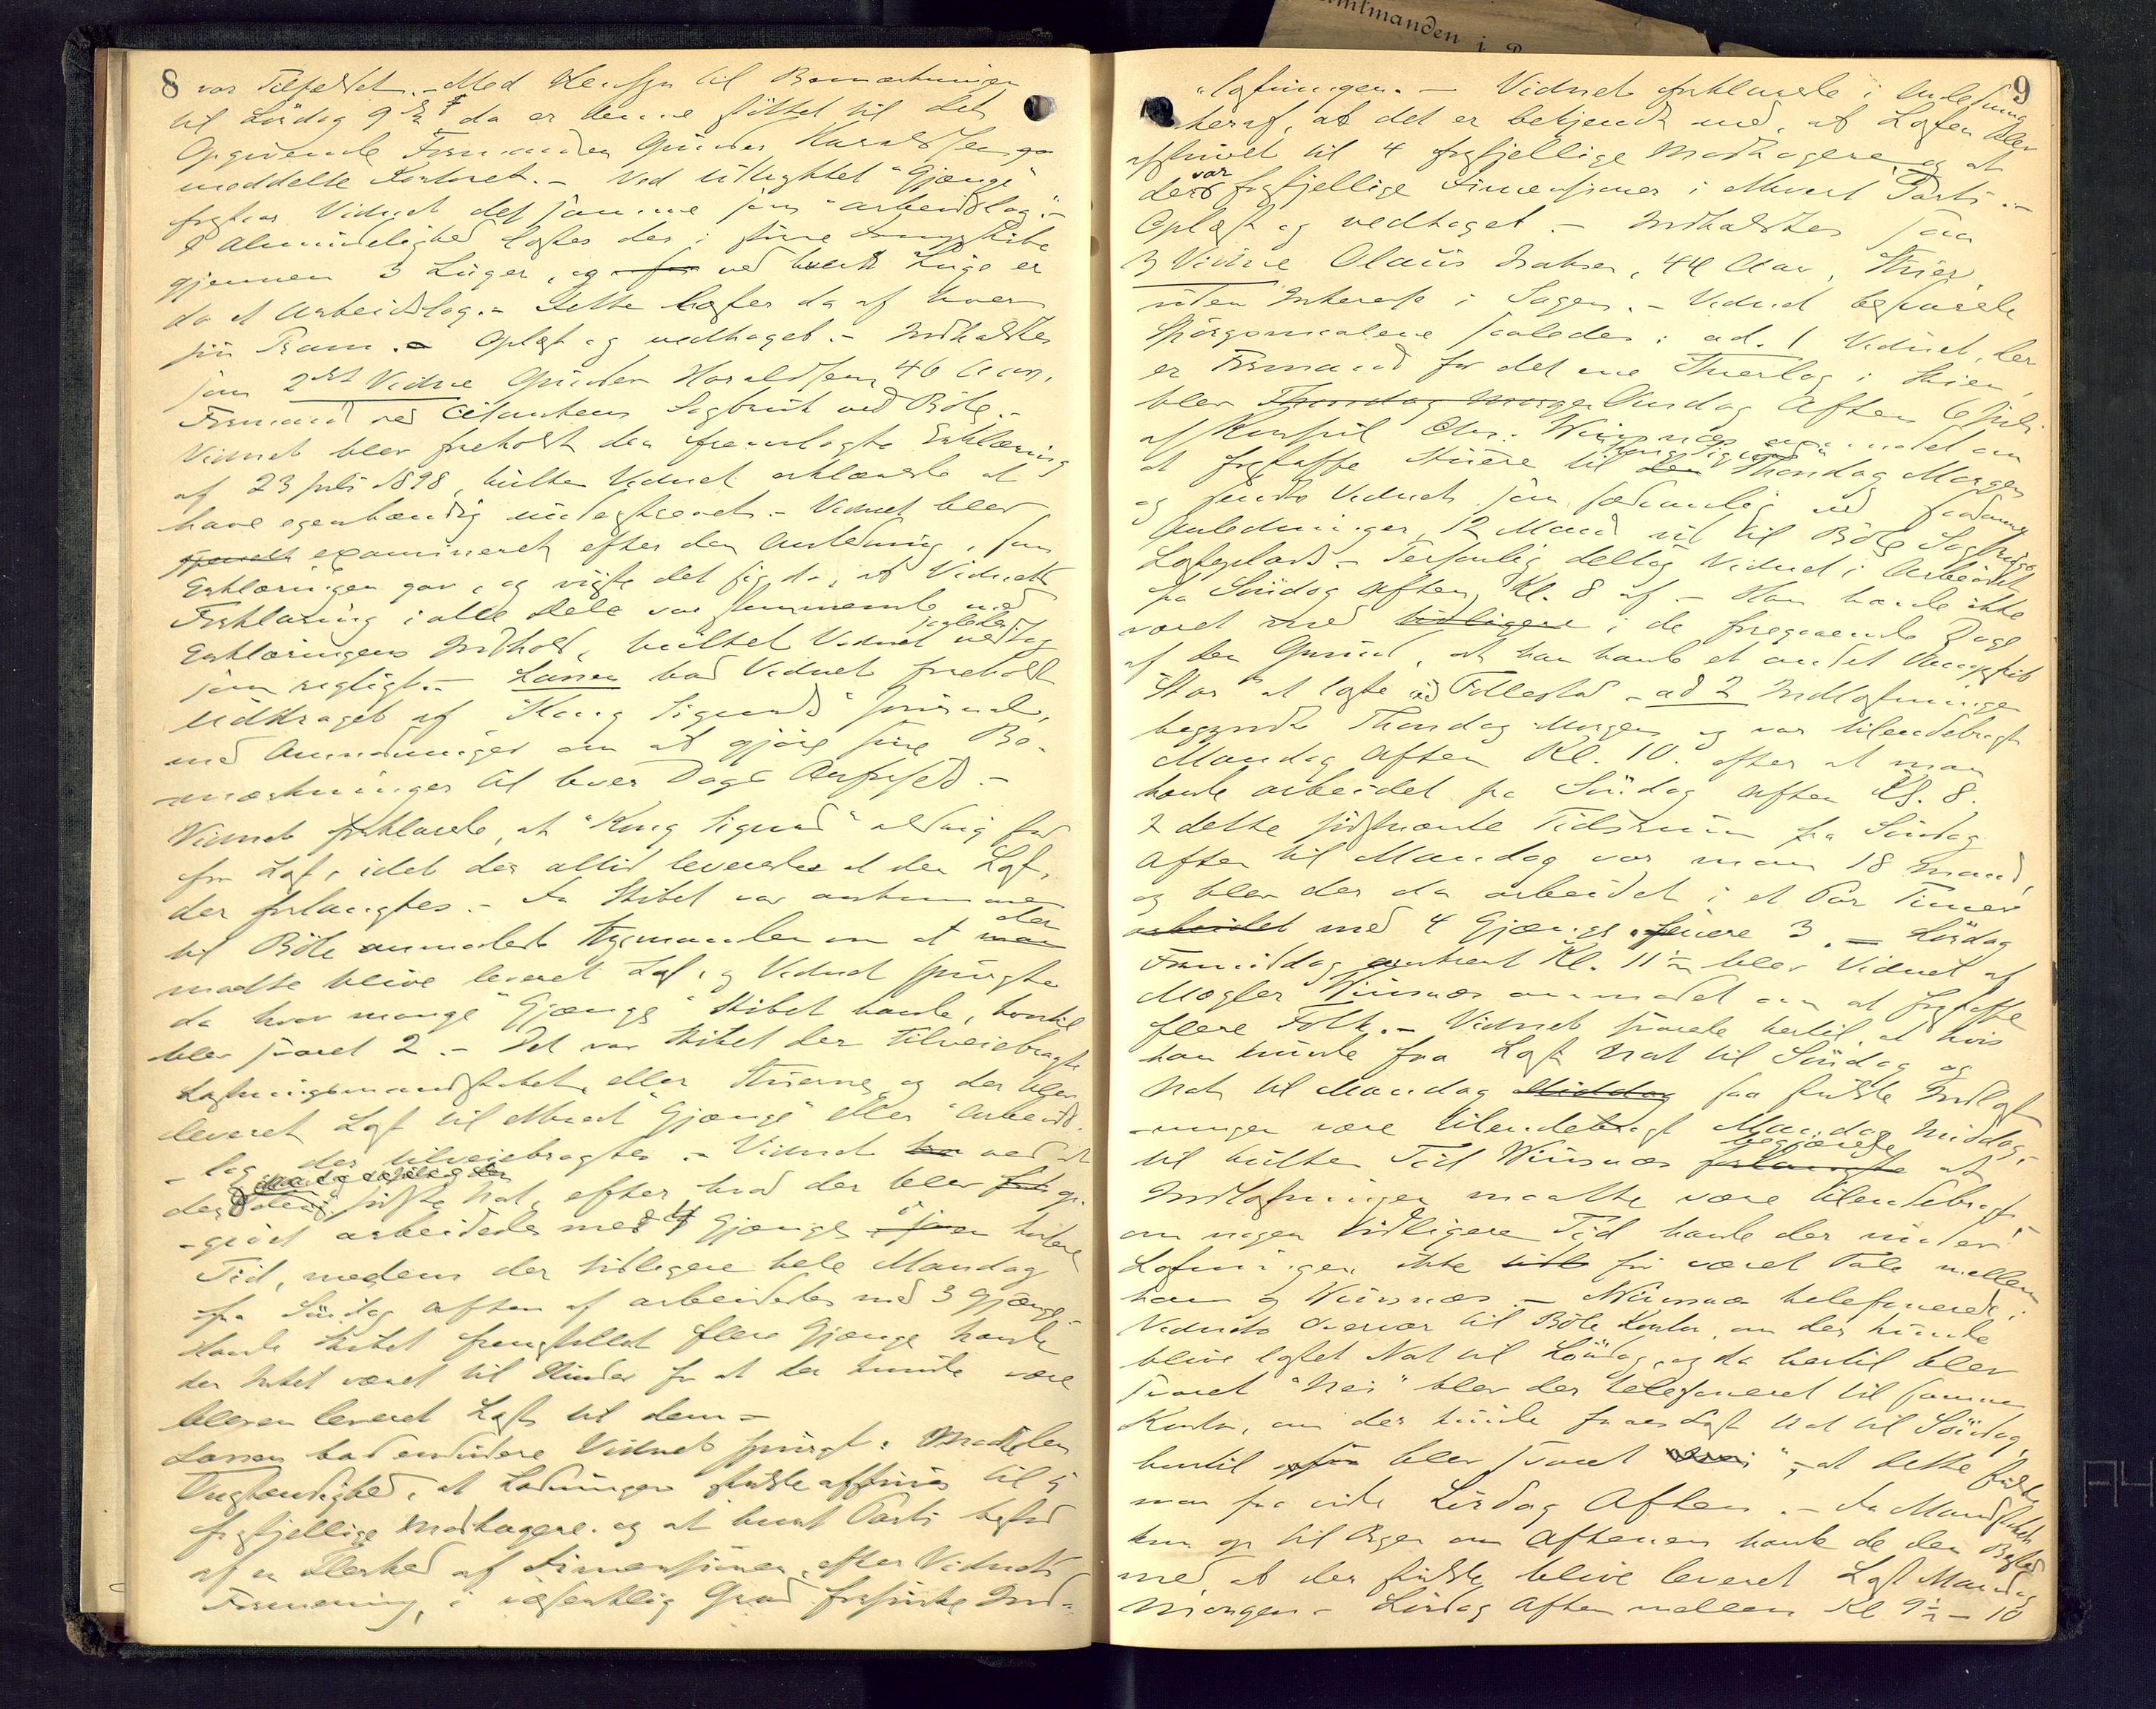 amtmanden i
8 var Tilfældet. - Med Hensyn til Bemærkningen
til Lördag 9 da er denne støttet til det
Opgivende Formanden Gunder Haraldsen
meddelte Kontoret. - Ved Udtrykket "Gjænge"
forstaar Vidnet det samme som "arbeidslag". -
I Almindelighed lastes der i större Dampskibe
gjennem 3 Luger, og ved hver Luge er
da et Arbeidslag. - Dette laster da af hver
sin Pram. - Oplæst og vedtaget. - Indkaldtes
som 2det Vidne Gunder Haraldsen, 46 Aar,
Formand ved Sagbrug ved Böle. -
Vidnet blev foreholdt den fremlagte Erklæring
af 23 Juli 1898, hvilken Vidnet erklærede at
have egenhændig underskrevet. - Vidnet blev
examineret efter den Anledning, som
Erklæringen gav, og viste det sig da, at Vidnets
Forklaring i alle Dele var stemmende med
Erklæringens Indhold, hvilket Vidnet vedtog
som rigtigt. - Larsen bad Vidnet foreholdt
Uddraget af "Kong Sigurds" Journal,
med Anmodninger om at gjöre sine Be-
mærkninger til hver Dags Anførsel. -
Vidnet forklarede, at "Kong Sigurd" aldrig
for Last, idet der altid leveredes al den Last,
der forlangtes. - Da Skibet var ankommet
til Böle anmodede Styrmanden om at der
maatte blive leveret Last, og Vidnet spurgte
da hvor mange "Gjænge" Skibet havde, hvortil
blev svaret 2. - Det var Skibet der tilveiebragte
Lastningsmandskabet, eller Stuerne, og der blev
leveret Last til ethvert "Gjænge" eller "Arbeids-
lag" der tilveiebragtes. - Vidnet ved at
der sidste Nat, efter hvad der blev op-
givet arbeidedes med 4 Gjænge i en kortere
Tid, medens der tidligere hele Mandag
fra Söndag Aften af arbeidedes med 3 Gjænge.
Havde Skibet fremstillet flere Gjænge havde
der Intet været til Hinder for at der kunde være
bleven leveret Last til dem. -
Larsen bad endvidere Vidnet spurgt: Maatte den
Omstændighed, at Ladningen skulde afskibes til 4
forskjellige Modtagere og at hvert Parti bestod
af en Flerhed af Dimensioner, efter Vidnets
Formening, i væsentlig Grad forsinke Ind-
9
"lastningen. - Vidnet forklarede i Anledning
heraf, at det er bekjendt med, at Lasten blev
afskibet til 4 forskjellige Modtagere og at
der var forskjellige Dimensioner i ethvert Parti. -
Oplæst og vedtaget. - Indkaldtes saa
3 Vidne Olaus Isaksen, 44 Aar, Stuer,
uden Interesse i Sagen. - Vidnet besvarede
Spörgsmaalene saaledes: ad. 1 Vidnet, der
er Formand for det ene Stuerlag i Skien
blev Onsdag Aften 6 Juli
af Konsul Chr. Wiersnæs anmodet om
at forskaffe Stuere til "Kong Sigurd" Thorsdag Morgen
og sendte Vidnet som sedvanlig ved saadanne
Anledninger, 12 Mand ud til Böle Sagbrugs
Lasteplads. - Personlig deltog Vidnet i Arbeidet
fra Söndag Aften Kl. 8 af. - Han havde ikke
været med i de foregaaende Dage
af den Grund, at han havde et andet Dampskib
"Star" at laste ved Follestad - ad 2 Indlastningen
begyndte Thorsdag Morgen og var tilendebragt
Mandag Aften Kl. 10. efter at man
havde arbeidet fra Söndag Aften Kl. 8.
I dette sidstnævnte Tidsrum fra Söndag
Aften til Mandag var man 18 Mand,
og blev der da arbeidet i et Par Timer
med 4 Gjænge, senere 3. - Lördag
Formiddag omtrent Kl. 11 1/2 blev Vidnet af
Mægler Wiersnæs anmodet om at forskaffe
flere Folk. - Vidnet svarede hertil, at hvis
han kunde faa Last Nat til Söndag og
Nat til Mandag saa skulde Indlast-
ningen være tilendebragt Mandag Middag,
til hvilken Tid Wiersnæs begjærede at
Indlastningen maatte være tilendebragt
om nogen tidligere Tid havde der under
Lastningen ikke för været Tale mellem
ham og Wiersnæs. - Wiersnæs telefonerede i
Vidnets Overvær til Böle Kontor, om der kunde
blive lastet Nat til Söndag, og da hertil blev
svaret "Nei" blev der telefoneret til samme
Kontor, om der kunde faaes Last Nat til Söndag,
hertil blev svaret, at dette skulde
man faa vide Lördag Aften. - Da Mandskabet
kom op til Byen om Aftenen havde de den Besked
med at der skulde blive leveret Last Mandag
Morgen. - Lördag Aften mellem Kl 9 1/2 - 10